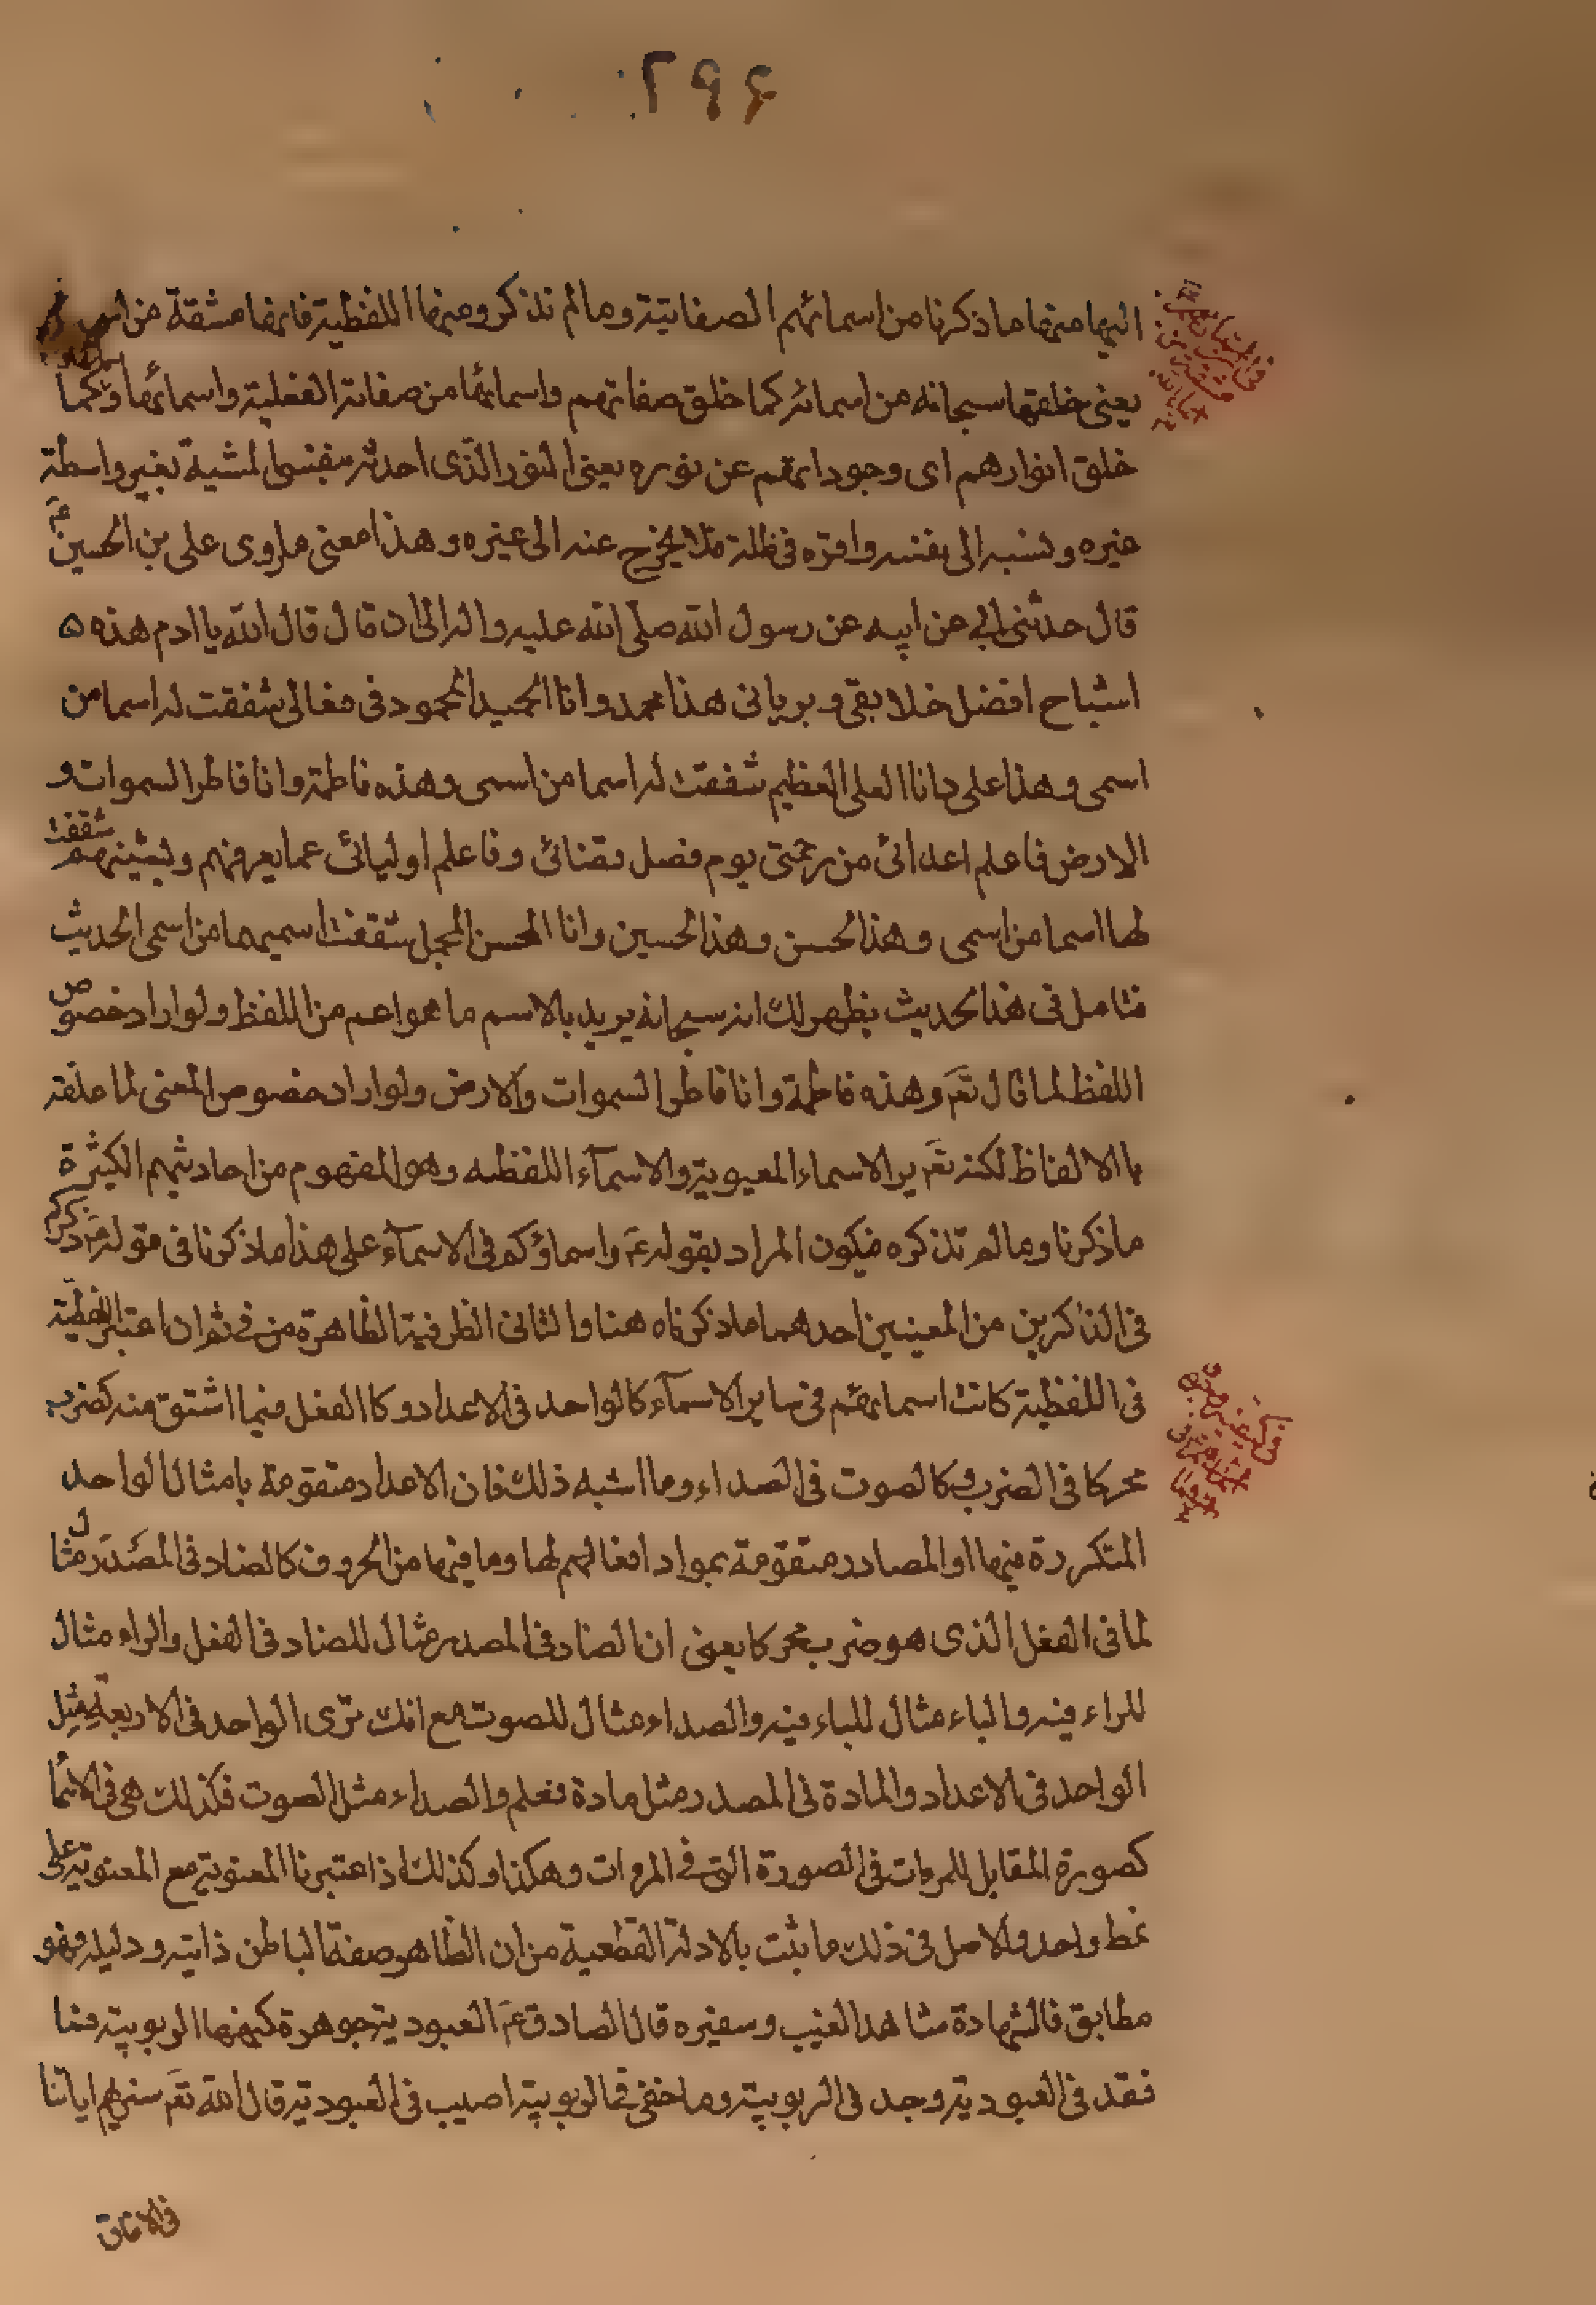 ۲۹۶
اليها منها ما ذكرنا من اسمائهم الصفاتية وما لم نذكر ومنها اللفظية فانها مشقة من
يعنى خلقها سبحانه من اسمائه كما خلق صفاتهم واسمائها من صفاته الفعلية واسمائها وكما
خلق انوارهم اى وجوداتهم عن نوره يعنى النور الذى احدثه بنفس المشية بغير واسطة
غيره ونسبه الى نفسه واقره فى ظله فلا يخرج عنه الى غيره وهذا معنى ما روى على بن الحسين عم
قال حدثنى ابى عن ابيه عن رسول الله صلى الله عليه واله الى ان قال قال الله يا ادم هذه ۵
اشباح افضل خلايقى وبرياتى هذا محمد وانا الحميد المحمود فى فعالى شققت له اسما من
اسمى وهذا على وانا العلى العظيم شققت له اسما من اسمى وهذه فاطمة وانا فاطر السموات و
الارض فاعلم اعدائى من رحمتى يوم فصل قضائى وفاعلم اوليائى عما يعرفهم ويشينهم شققت
لها اسما من اسمى وهذا الحسن وهذا الحسين وانا المحسن المجمل شققت اسميهما من اسمى الحديث
فتامل فى هذا الحديث يظهر لك انه سبحانه يريد بالاسم ما هو اعم من اللفظ ولو اراد خصوص
اللفظ لما قال تعم وهذه فاطمة وانا فاطر السموات والارض ولو اراد خصوص المعنى لما علقه
بالالفاظ لكنه تعم يرالاسماء المعيوية والاسمآء اللفظيه وهو المفهوم من احاديثهم الكثيرة
ما ذكرنا وما لم نذكره فيكون المراد بقوله عم واسماؤكم فى الاسمآء على هذا ما ذكرنا فى قوله عم ذكركم
فى الذاكرين من المعنيين احدهما ما ذكرناه هنا والثانى الظرفية الظاهرة من فى ثم ان اعتبر اللفظية
فى اللفظية كانت اسمائهم فى ساير الاسمآء كالواحد فى الاعداد وكالفعل فيما اشتق منه كضرب
محركا فى الضرب وكالصوت فى الصداء وما اشبه ذلك فان الاعداد متقومة بامثال الواحد
المتكررة فيها او المصادر متقومة بمواد افعالهم لها وما فيها من الحروف كالضاد فى المصدر مثال
لما فى الفعل الذى هو ضرب محركا يعنى ان الضاد فى المصدر مثال للضاد فى الفعل والراء مثال
للراء فيه والباء مثال للباء فيه والصداء مثال للصوت مع انك ترى الواحد فى الاربعة مثل
الواحد فى الاعداد والمادة فى المصدر مثل مادة فعله والصداء مثل الصوت فكذلك هى فى الاسما
كصورة المقابل للمرءات فى الصورة التى فى المروات وهكذا وكذلك اذا عتبرنا المعنوية مع المعنوية على
نمط واحد والاصل فى ذلك ما ثبت بالادلة القطعية من ان الظاهر صفة الباطن ذاتيه ودليله فهو
مطابق فالشهادة مشاهد الغيب وسفيره قال الصادق عم العبودية جوهرة كنهها الربوبية فما
فقد فى العبودية وجد فى الربوبية وما خفى فى الربوبية اصيب فى العبودية قال الله تعم سنريهم اياتنا
فى الافاق